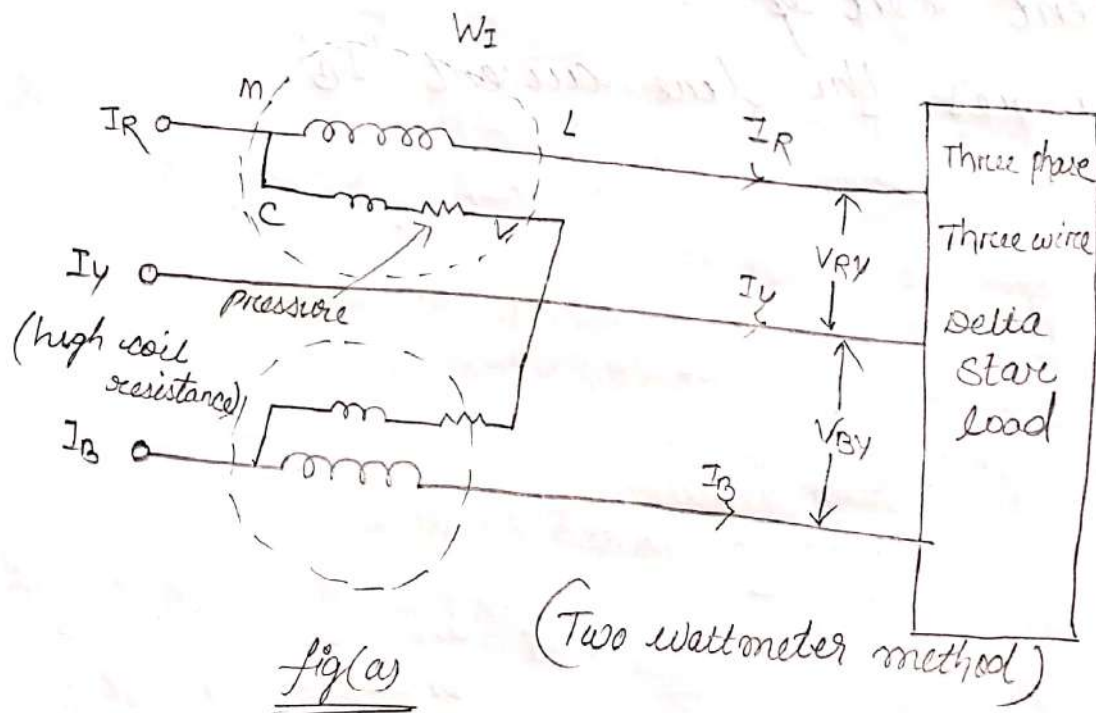 W_I
M
I_R
L
I_R
C
V
I_y
pressure
(high coil
resistance)
I_y
V_RY
I_B
V_BY
I_B
Three phase
Three wire
Delta
Star
Load
(Two wattmeter method)
fig(a)